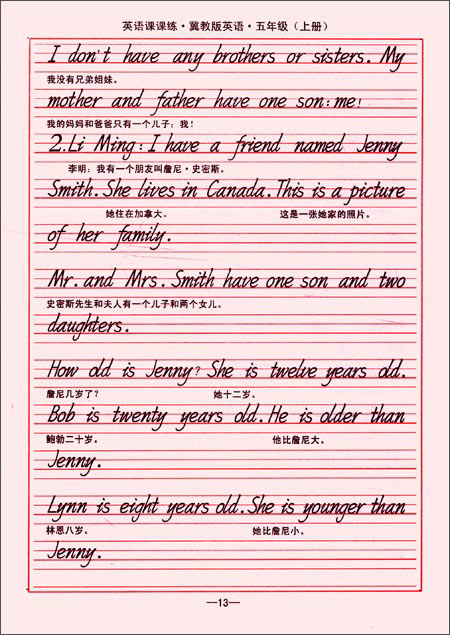 英语课课练·冀教版英语·五年级（上册）
I don't have any brothers or sisters. My
我没有兄弟姐妹。
mother and father have one son: me!
我的妈妈和爸爸只有一个儿子：我！
2. Li Ming: I have a friend named Jenny
李明：我有一个朋友叫詹尼·史密斯。
Smith. She lives in Canada. This is a picture
她住在加拿大。 这是一张她家的照片。
of her family.
Mr. and Mrs. Smith have one son and two
史密斯先生和夫人有一个儿子和两个女儿。
daughters.
How old is Jenny? She is twelve years old.
詹尼几岁了？ 她十二岁。
Bob is twenty years old. He is older than
鲍勃二十岁。 他比詹尼大。
Jenny.
Lynn is eight years old. She is younger than
林恩八岁。 她比詹尼小。
Jenny.
—13—